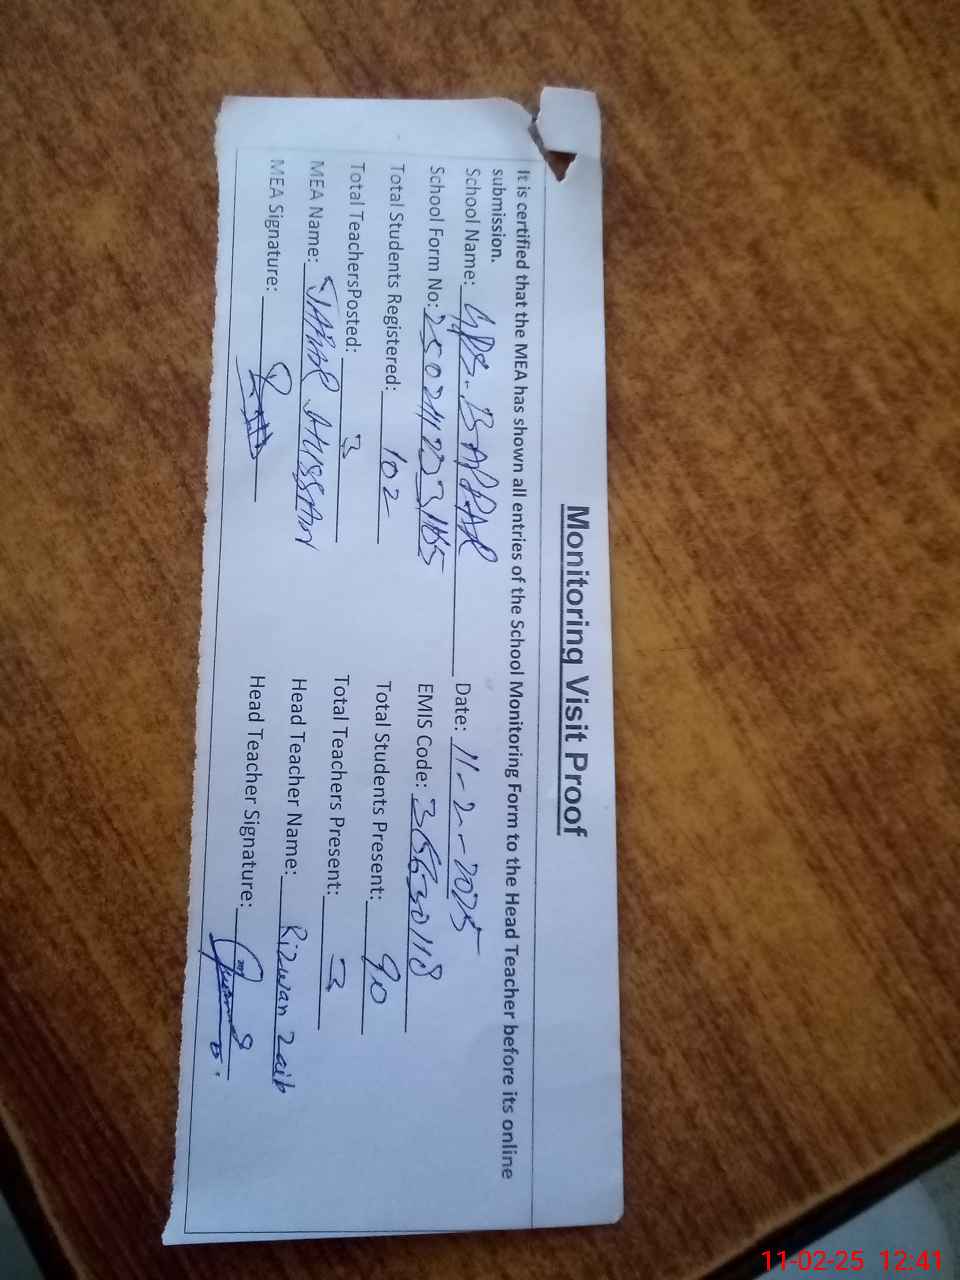 Monitoring Visit Proof
It is certified that the MEA has shown all entries of the School Monitoring Form to the Head Teacher before its online
submission.
School Name: GPS. BAPPAR Date: 11-2-2025
School Form No: EMIS Code:
Total Students Registered: 102 Total Students Present: 90
Total TeachersPosted: 3 Total Teachers Present: 3
MEA Name: Head Teacher Name: Rizwan Zaib
MEA Signature: Head Teacher Signature:
11-02-25 12:41